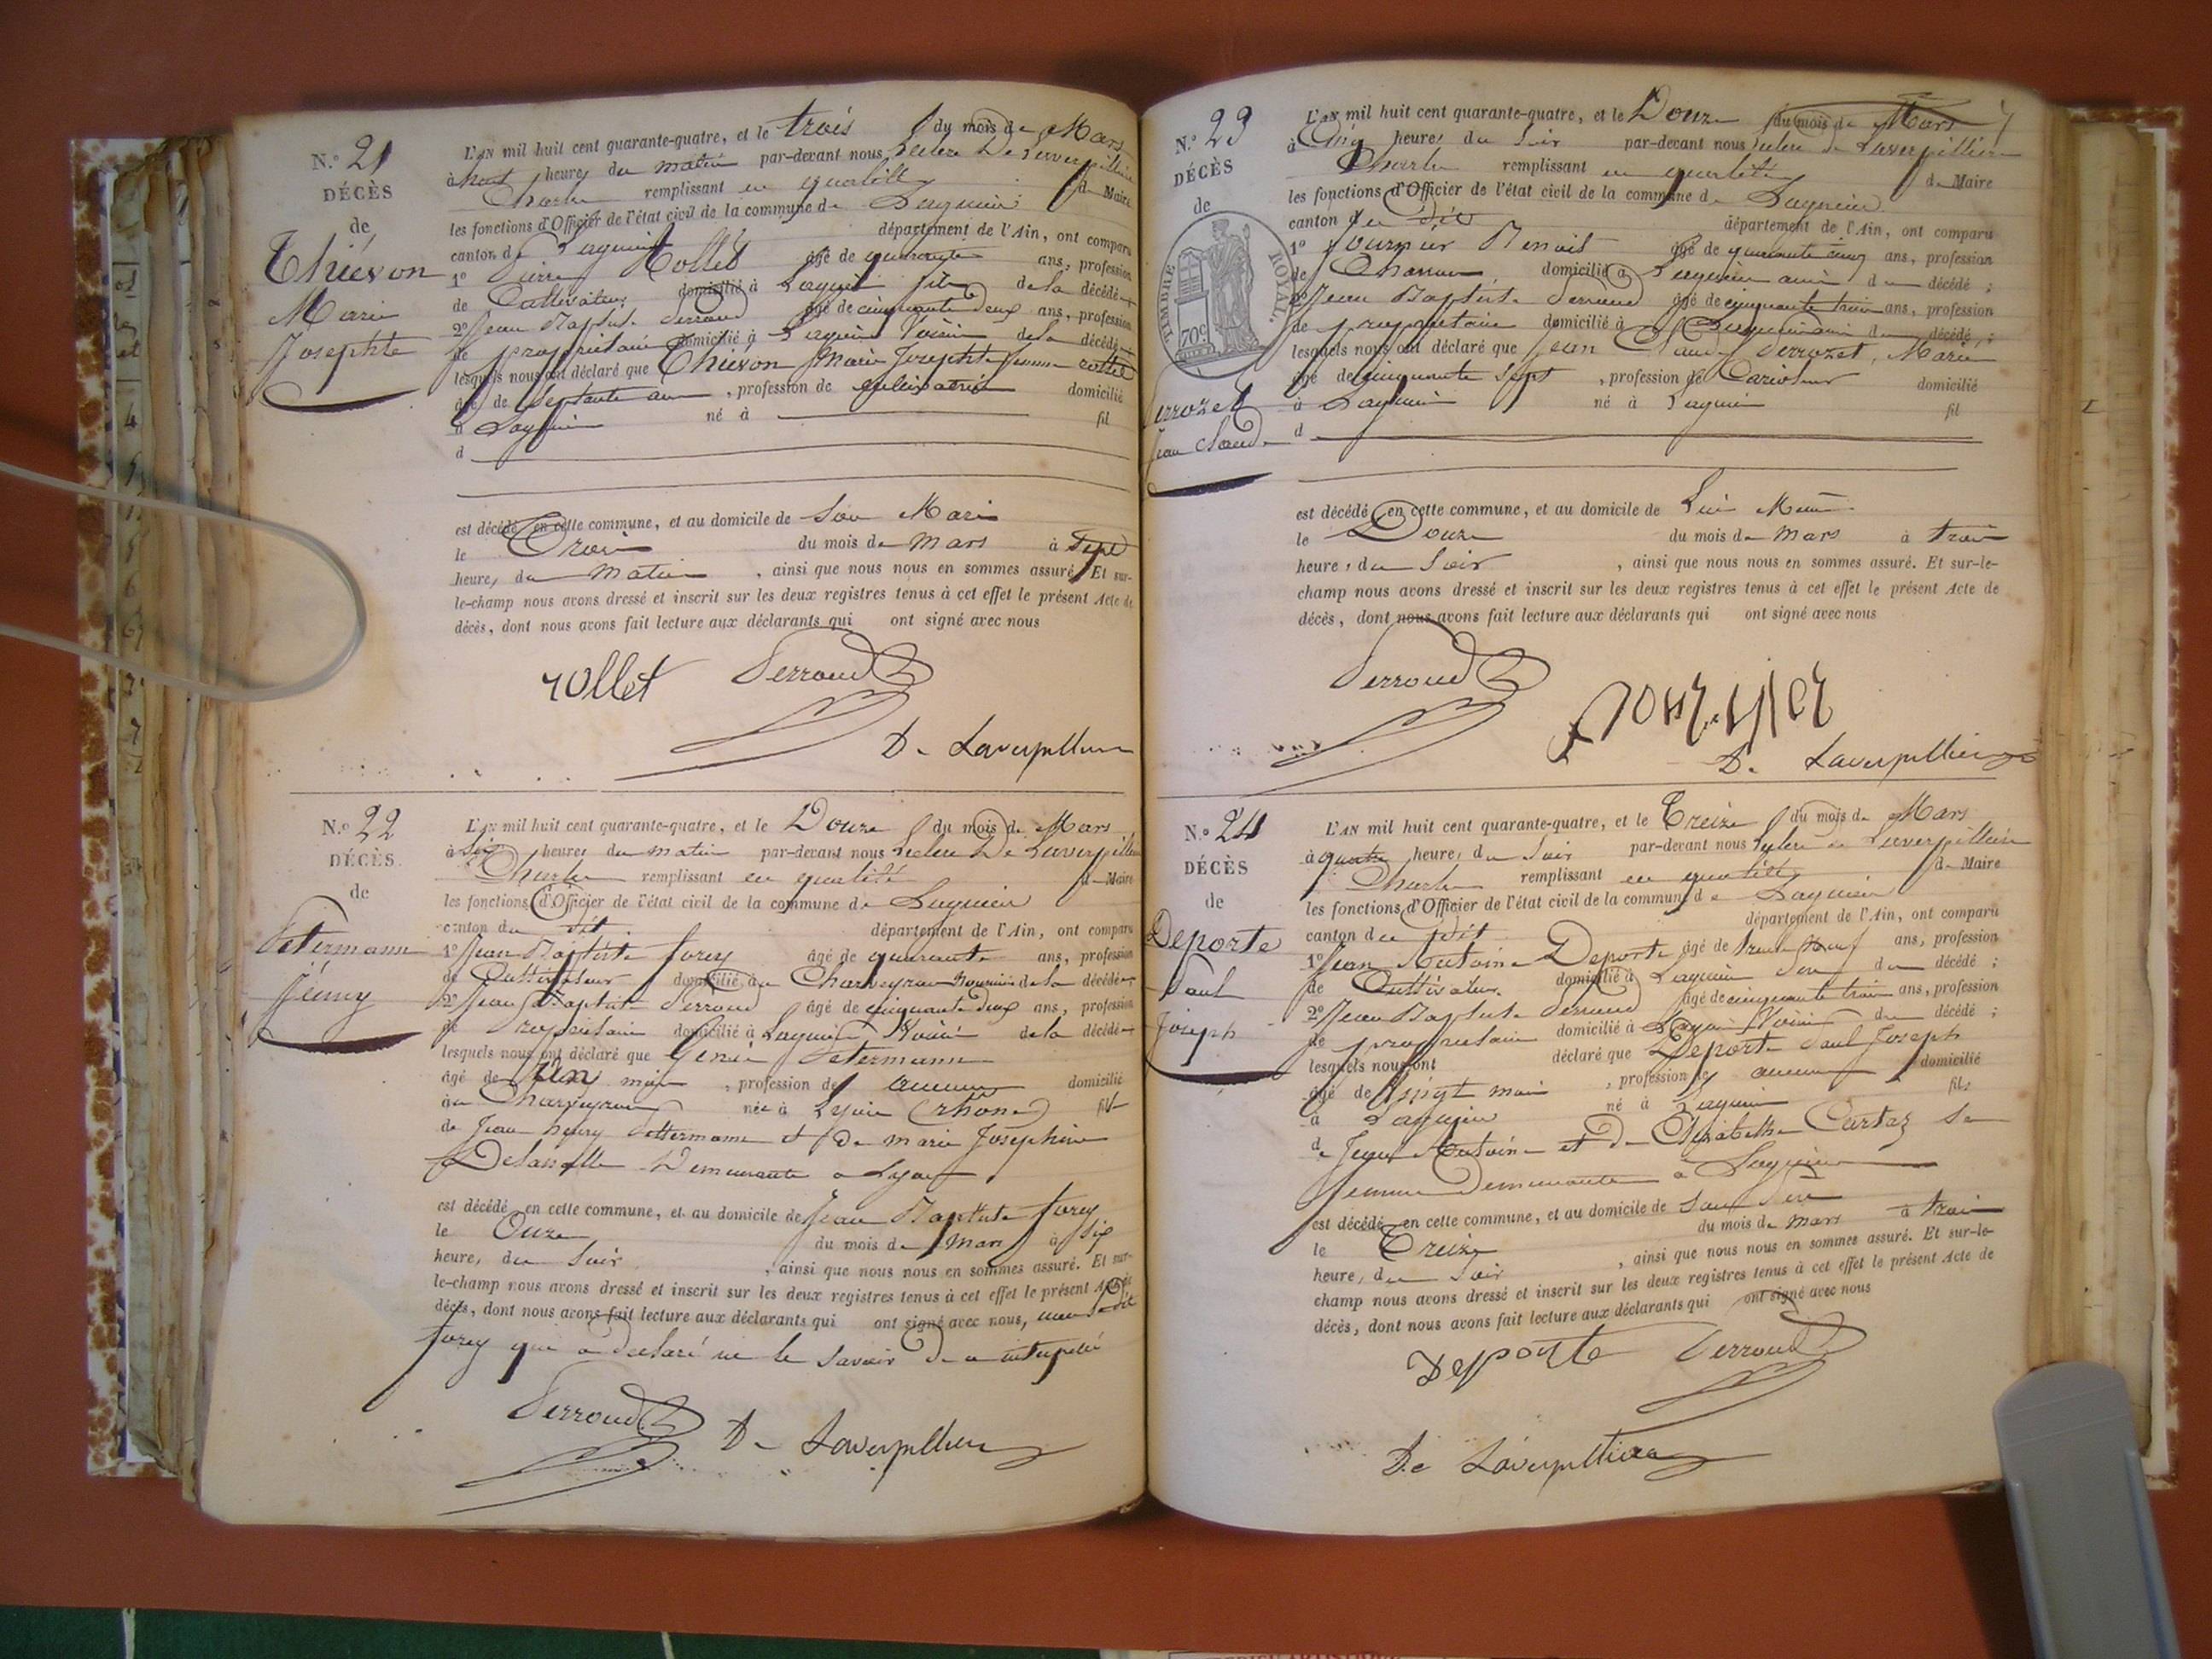 N.º 21
DÉCÈS
de
Thiévon
Marie
Josephte
L'AN mil huit cent quarante-quatre, et le trois du mois de Mars
à huit heures du matin par-devant nous Leclerc De Laverpillière
Charles remplissant en qualité de Maire
les fonctions d'Officier de l'état civil de la commune de Lagnieu
canton de Lagnieu département de l'Ain, ont comparu
1º Pierre Rollet âgé de quarante ans, profession
de Cultivateur domicilié à Lagnieu fils de la décédée
2º Jean Baptiste Perroud âgé de cinquante deux ans, profession
de propriétaire domicilié à Lagnieu Voisin de la décédée
lesquels nous ont déclaré que Thiévon Marie Josephte femme rollet
âgé de septante ans, profession de cultivatrice domicilié
à Lagnieu né à fil
d
est décédé en cette commune, et au domicile de Son Mari
le Trois du mois de Mars à Sept
heures du Matin, ainsi que nous nous en sommes assuré. Et sur-
le-champ nous avons dressé et inscrit sur les deux registres tenus à cet effet le présent Acte de
décès, dont nous avons fait lecture aux déclarants qui ont signé avec nous
rollet Perroud
De Laverpillière
N.º 22
DÉCÈS
de
Petermann
Jénny
L'AN mil huit cent quarante-quatre, et le Douze du mois de Mars
à Six heures du matin par-devant nous Leclerc De Laverpillière
Charles remplissant en qualité de Maire
les fonctions d'Officier de l'état civil de la commune de Lagnieu
canton du dit département de l'Ain, ont comparu
1º Jean Baptiste forey âgé de quarante ans, profession
de Cultivateur domicilié au Charveyron Nourricier de la décédée
2º Jean Baptiste Perroud âgé de cinquante deux ans, profession
de propriétaire domicilié à Lagnieu Voisin de la décédée
lesquels nous ont déclaré que Petermann
âgé de Un mois, profession de aucune domicilié
au Charveyron née à Lyon (rhône) fille
de Jean henry Pettermann et de marie Joséphine
Demeurante a Lyon
est décédé en cette commune, et au domicile de Jean Baptiste forey
le Onze du mois de Mars à Six
heures du Soir, ainsi que nous nous en sommes assuré. Et sur-
le-champ nous avons dressé et inscrit sur les deux registres tenus à cet effet le présent Acte de
décès, dont nous avons fait lecture aux déclarants qui ont signé avec nous, non le dit
forey qui a declaré ne le savoir de ce interpellé
Perroud De Laverpillière
N.º 23
DÉCÈS
de
TIMBRE ROYAL.
70c
Perrozet
Jean Claude
L'AN mil huit cent quarante-quatre, et le Douze du mois de Mars
à Cinq heures du Soir par-devant nous Leclerc de Laverpillière
Charles remplissant en qualité de Maire
les fonctions d'Officier de l'état civil de la commune de Lagnieu
canton du dit département de l'Ain, ont comparu
1º fournier Benoit âgé de quarante cinq ans, profession
de domicilié à Lagnieu ami du décédé;
2º Jean Baptiste Perroud âgé de cinquante trois ans, profession
de propriétaire domicilié à Lagnieu ami du décédé;
lesquels nous ont déclaré que Jean Claude Perrozet, Marié
âgé de cinquante sept, profession de domicilié
à Lagnieu né à Lagnieu fil
d
est décédé en cette commune, et au domicile de Lui Même
le Douze du mois de Mars à trois
heures du Soir, ainsi que nous nous en sommes assuré. Et sur-le-
champ nous avons dressé et inscrit sur les deux registres tenus à cet effet le présent Acte de
décès, dont nous avons fait lecture aux déclarants qui ont signé avec nous
Perroud
fournier
De Laverpillière
N.º 24
DÉCÈS
de
Deporte
Paul
Joseph
L'AN mil huit cent quarante-quatre, et le Treize du mois de Mars
à quatre heures du Soir par-devant nous Leclerc de Laverpillière
Charles remplissant en qualité de Maire
les fonctions d'Officier de l'état civil de la commune de Lagnieu
canton du dit département de l'Ain, ont comparu
1º Jean Antoine Deporte âgé de trente Neuf ans, profession
de Cultivateur domicilié à Lagnieu Père du décédé;
2º Jean Baptiste Perroud âgé de cinquante trois ans, profession
de propriétaire domicilié à Lagnieu Voisin du décédé;
lesquels nous ont déclaré que Deporte Paul Joseph
âgé de Vingt mois, profession de aucune domicilié
à Lagnieu né à Lagnieu fils
de Jean Antoine et de Elizabethe Cartaz Sa
femme Demeurante a Lagnieu
est décédé en cette commune, et au domicile de Son Père
le Treize du mois de Mars à trois
heures du Soir, ainsi que nous nous en sommes assuré. Et sur-le-
champ nous avons dressé et inscrit sur les deux registres tenus à cet effet le présent Acte de
décès, dont nous avons fait lecture aux déclarants qui ont signé avec nous
Deporte Perroud
De Laverpillière